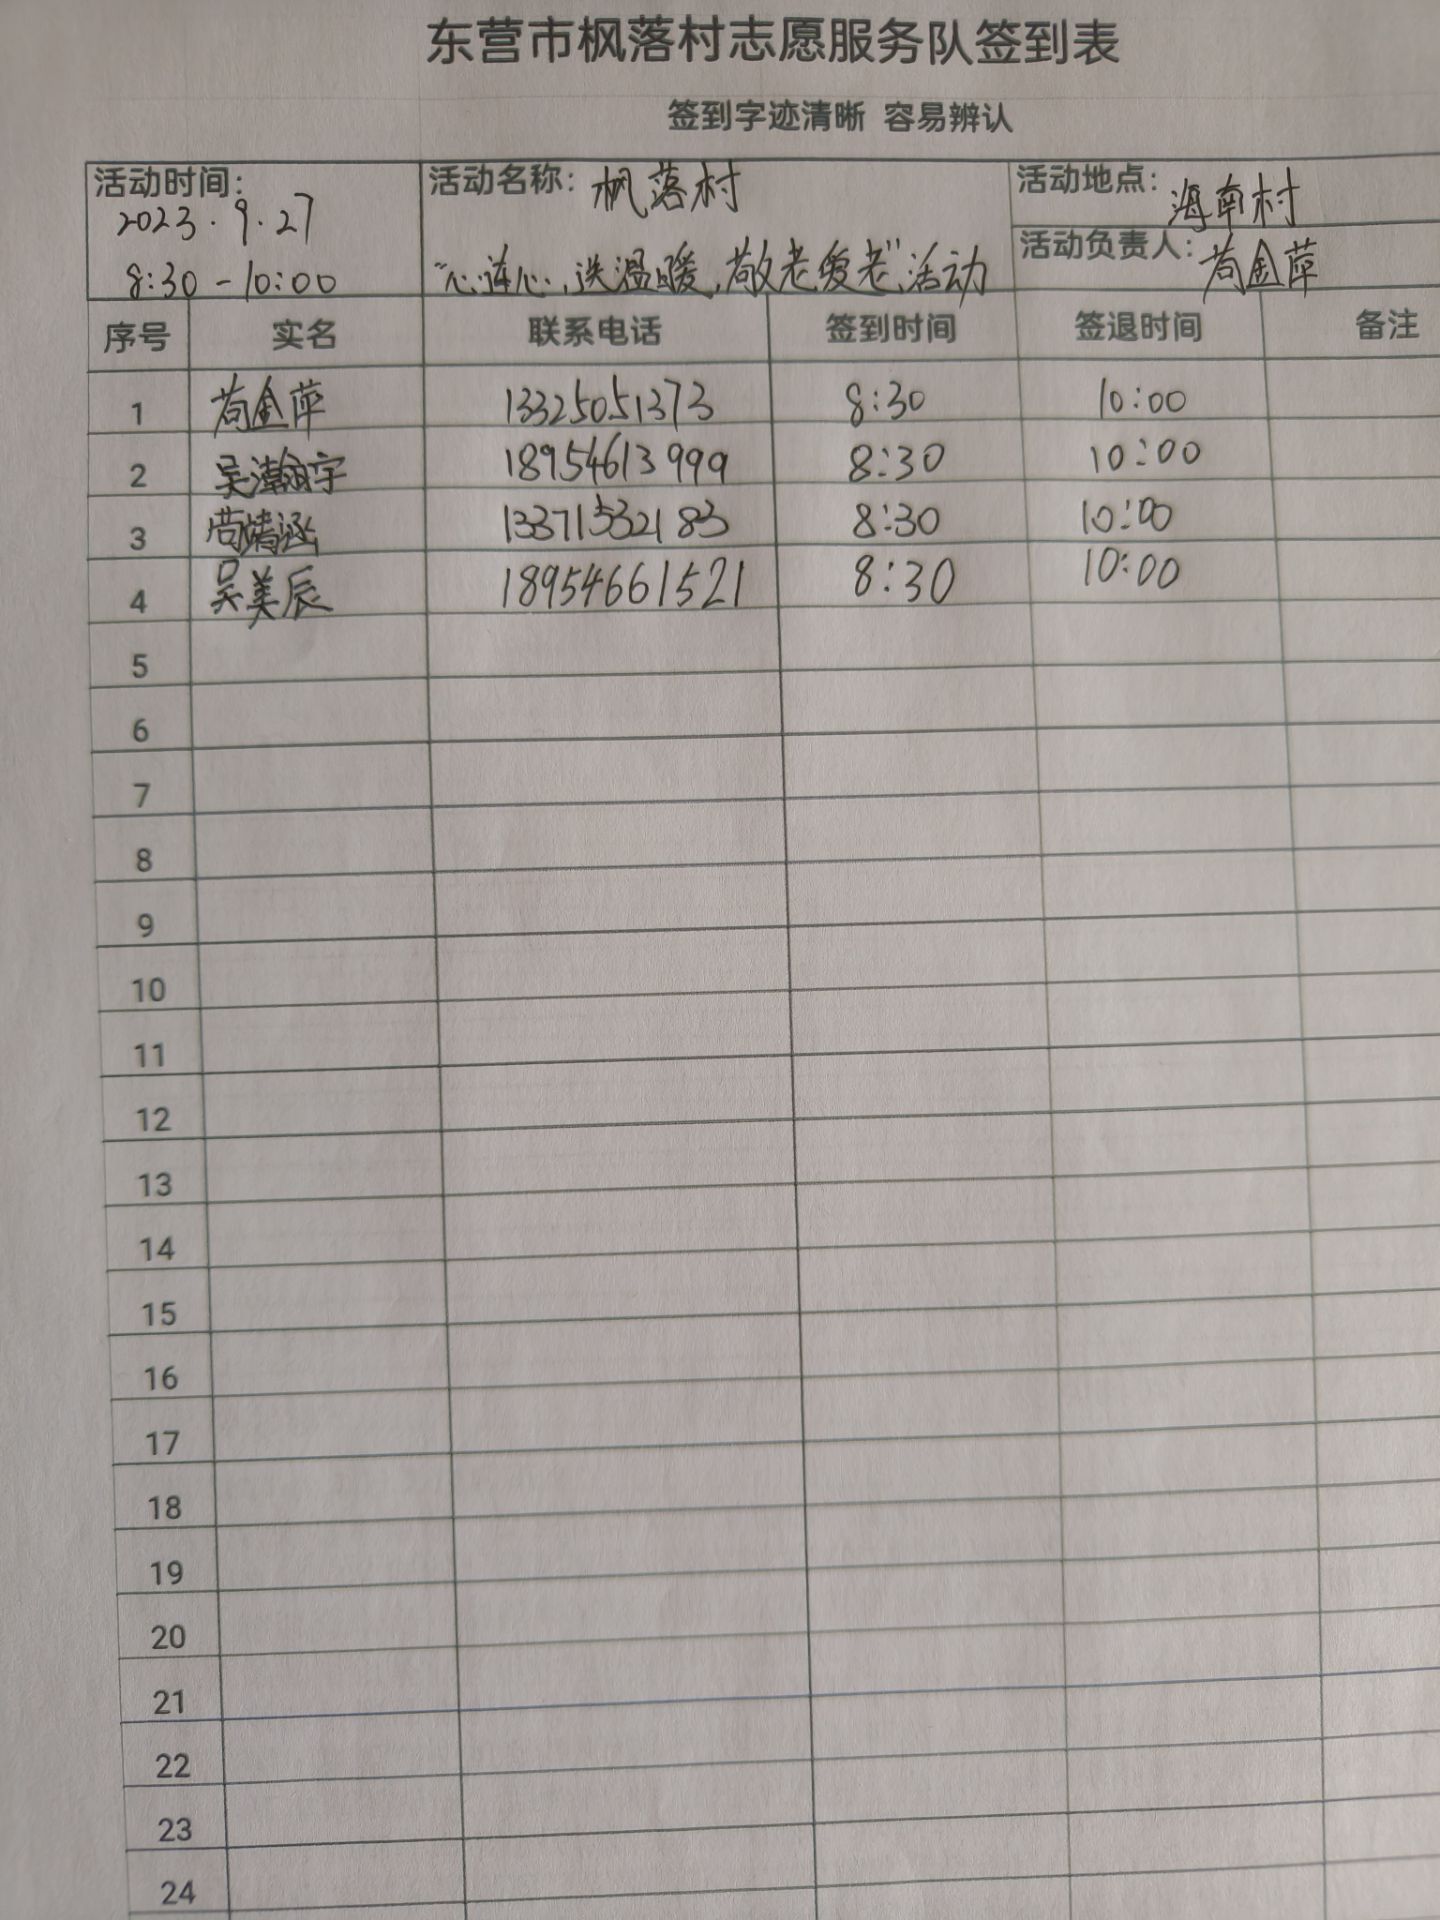 东营市枫落村志愿服务队签到表
签到字迹清晰 容易辨认
活动时间:
2023.9.27
8:30-10:00
活动名称: 枫落村
“心连心,送温暖,敬老爱老”活动
活动地点: 海南村
活动负责人: 苟金萍
序号 实名 联系电话 签到时间 签退时间 备注
1 苟金萍 13325051373 8:30 10:00
2 吴瀚宇 18954613999 8:30 10:00
3 13371532183 8:30 10:00
4 吴美辰 18954661521 8:30 10:00
5
6
7
8
9
10
11
12
13
14
15
16
17
18
19
20
21
22
23
24